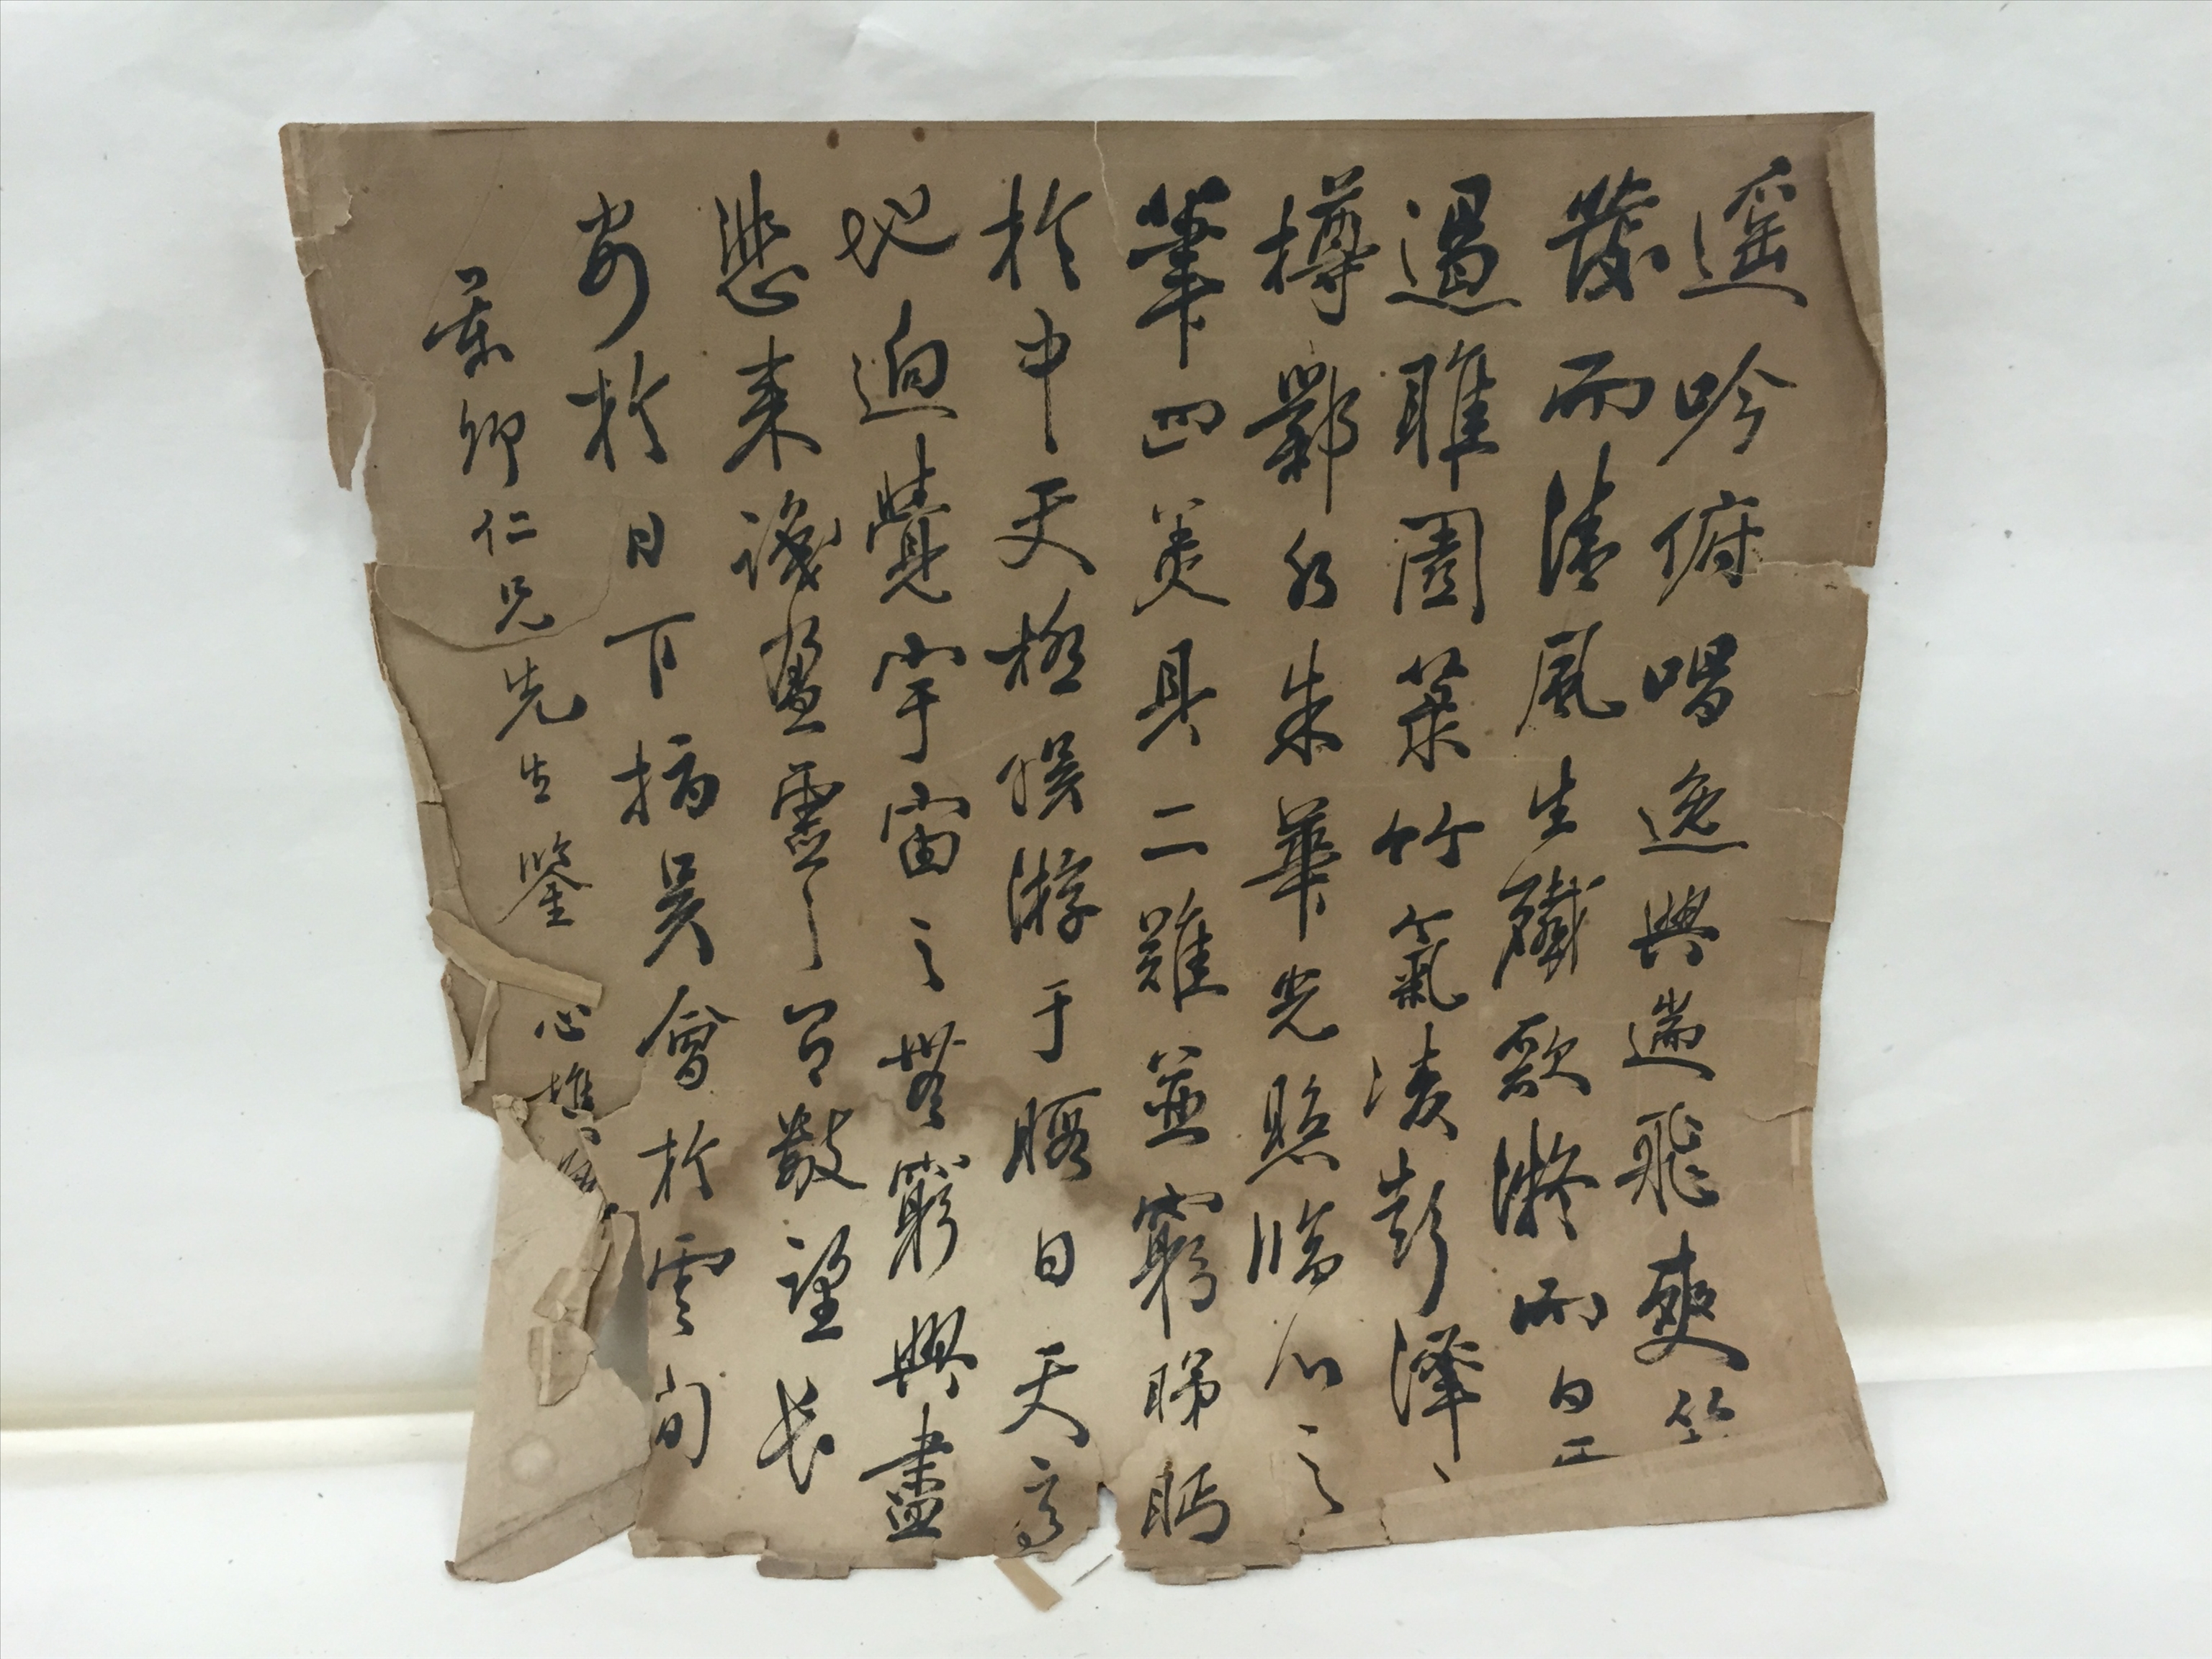 遥吟俯唱逸興遄飛爽竺
發而清風生纖歌凝而白雲
遏睢園菉竹氣凌彭澤之
樽鄴水朱華光照臨川之
筆四美具二難並窮睇眄
於中天極娛游于暇日天高
地迥覺宇宙之無窮興盡
悲來識盈虛之有數望長
安於日下指吳會於雲間
仰仁兄先生鑒
心